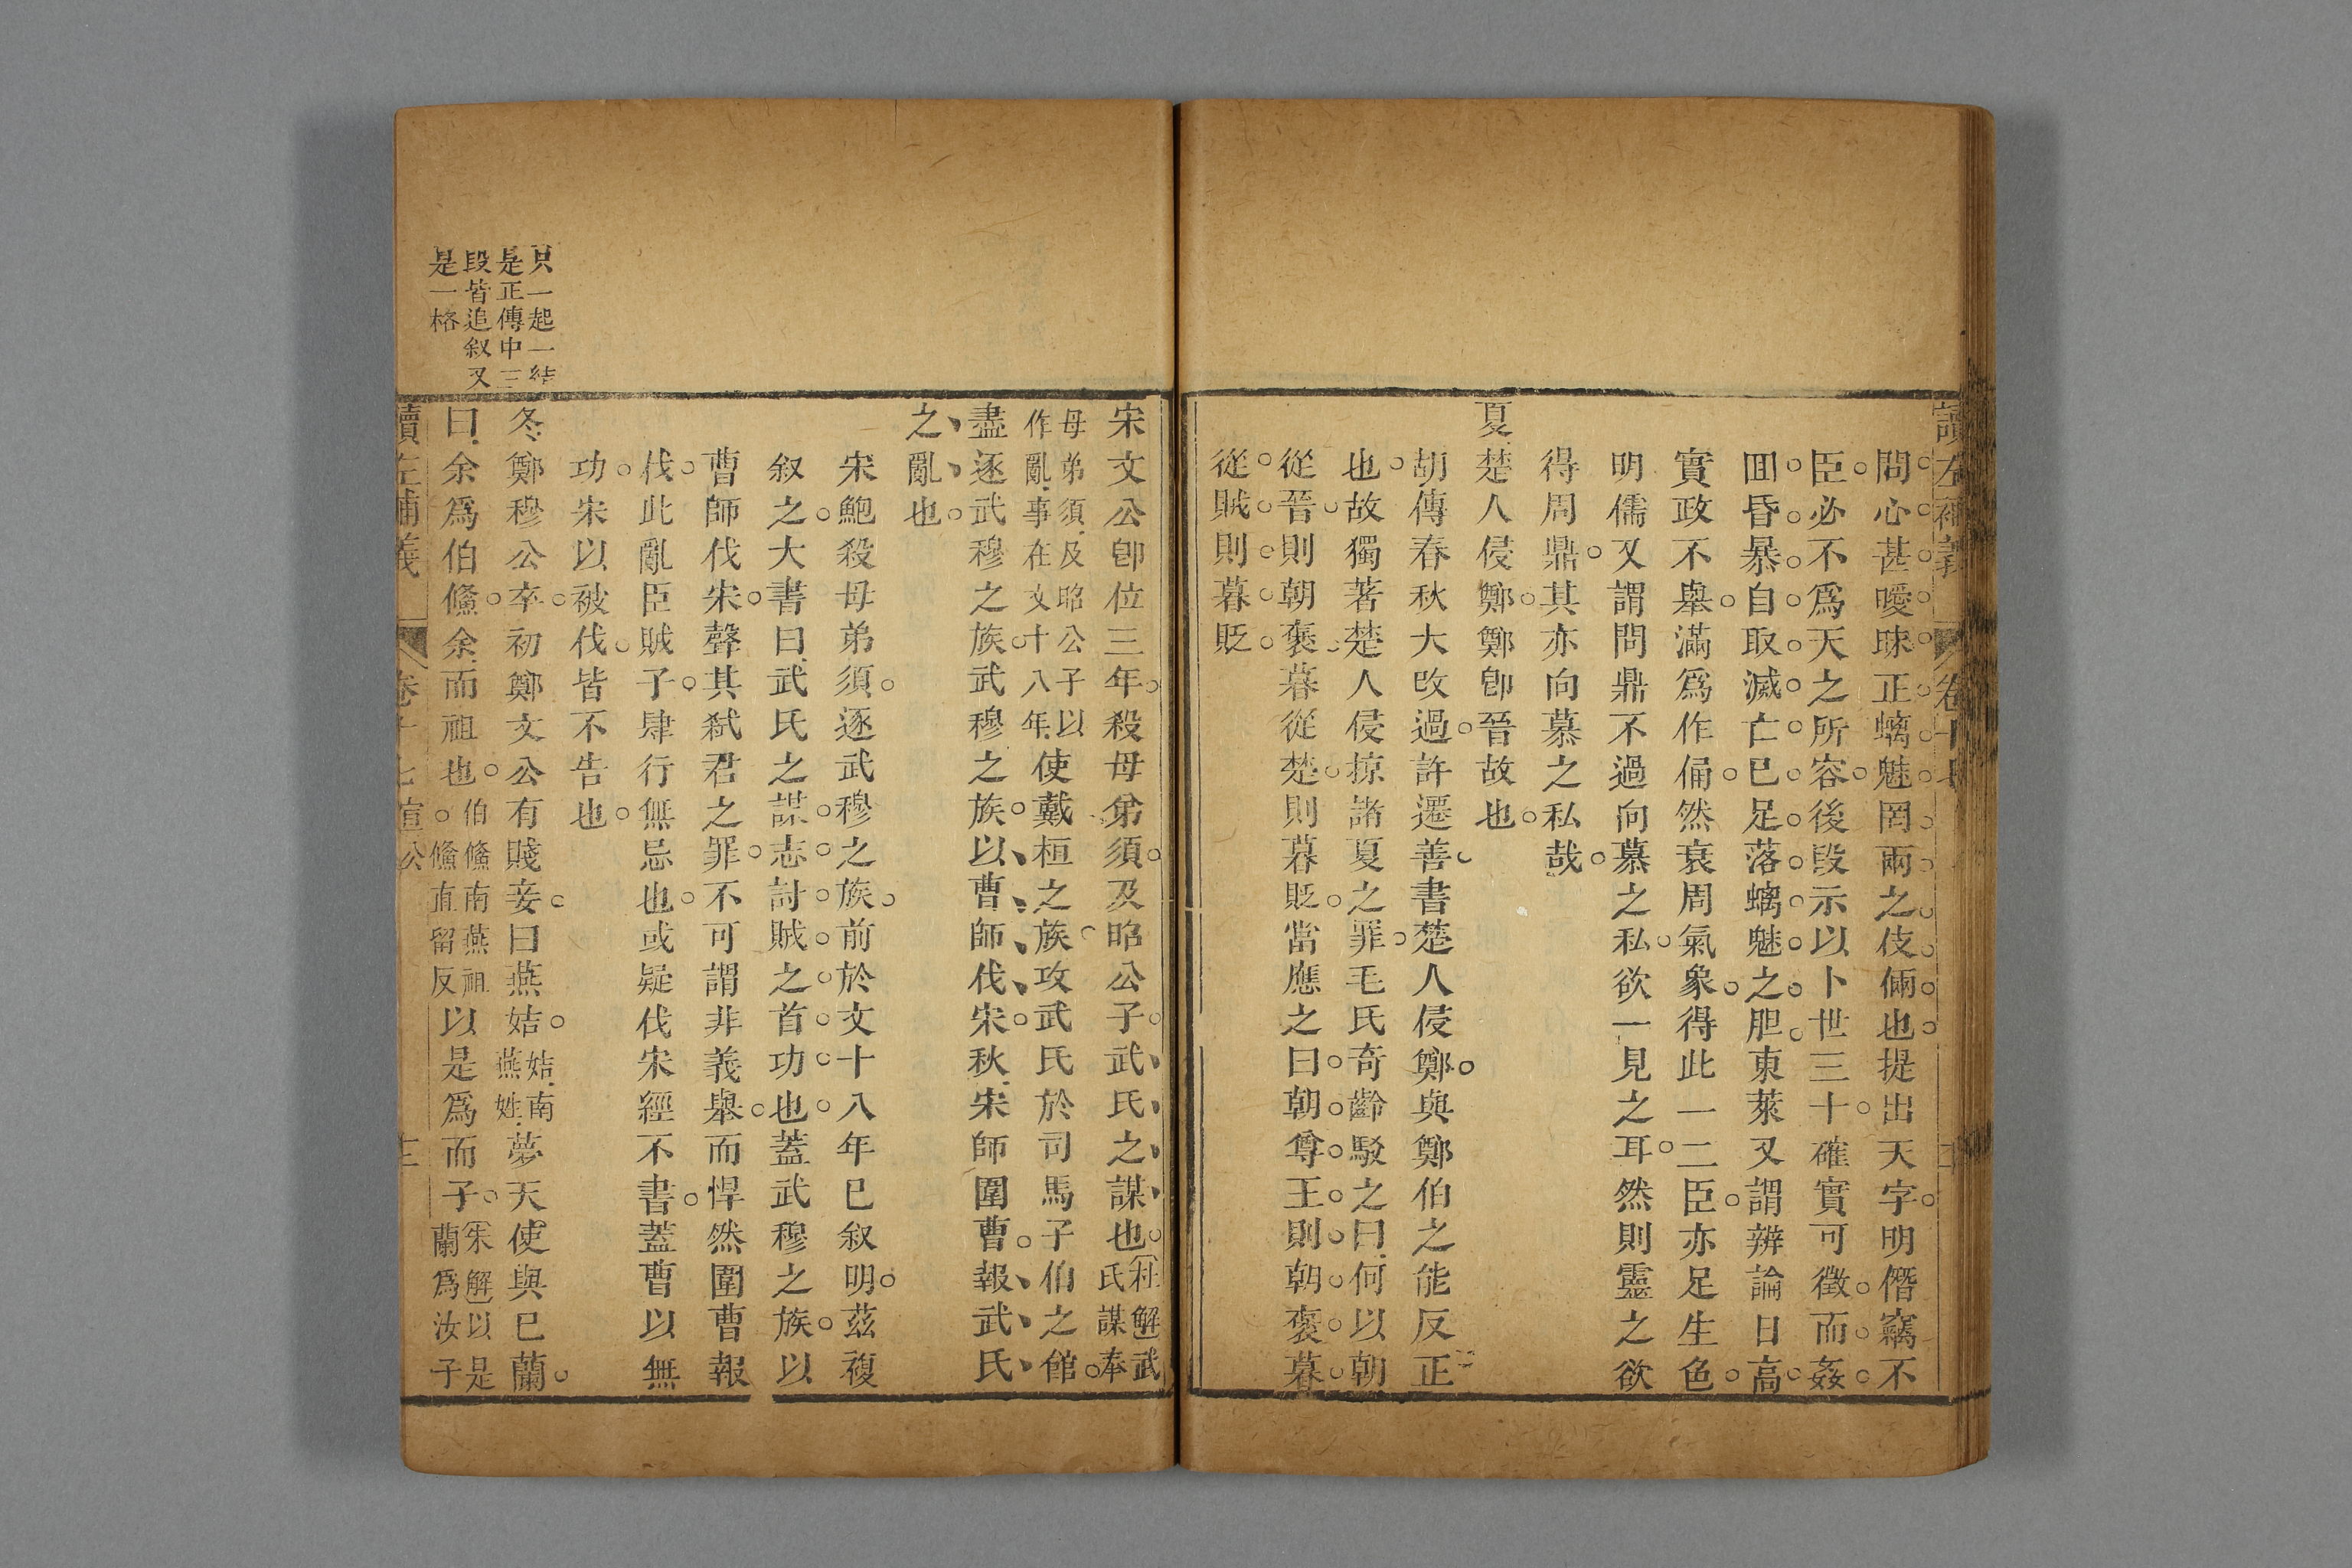 讀左補義 卷十七
問心甚曖昧正螭魅罔兩之伎倆也提出天字明僭竊不
臣必不爲天之所容後段示以卜世三十確實可徵而姦
回昏暴自取滅亡已足落螭魅之胆東萊又謂辨論日高
實政不舉滿爲作俑然衰周氣象得此一二臣亦足生色
明儒又謂問鼎不過向慕之私欲一見之耳然則靈之欲
得周鼎其亦向慕之私哉
夏楚人侵鄭鄭卽晉故也
胡傳春秋大改過許遷善書楚人侵鄭與鄭伯之能反正
也故獨著楚人侵掠諸夏之罪毛氏奇齡駁之曰何以朝
從晉則朝褒暮從楚則暮貶當應之曰朝尊王則朝褒暮
從賊則暮貶
宋文公卽位三年殺母弟須及昭公子武氏之謀也杜解武氏謀奉
母弟須及昭公子以作亂事在文十八年使戴桓之族攻武氏於司馬子伯之館
盡逐武穆之族武穆之族以曹師伐宋秋宋師圍曹報武氏
之亂也
宋鮑殺母弟須逐武穆之族前於文十八年已叙明茲複
叙之大書曰武氏之謀志討賊之首功也蓋武穆之族以
曹師伐宋聲其弒君之罪不可謂非義舉而悍然圍曹報
伐此亂臣賊子肆行無忌也或疑伐宋經不書蓋曹以無
功宋以被伐皆不告也
只一起一結
是正傳中三
段皆追叙又
是一格
冬鄭穆公卒初鄭文公有賤妾曰燕姞姞南燕姓夢天使與已蘭
曰余爲伯鯈余而祖也伯鯈南燕祖鯈直留反以是爲而子朱解以是蘭爲汝子
讀左補義 卷十七 宣公